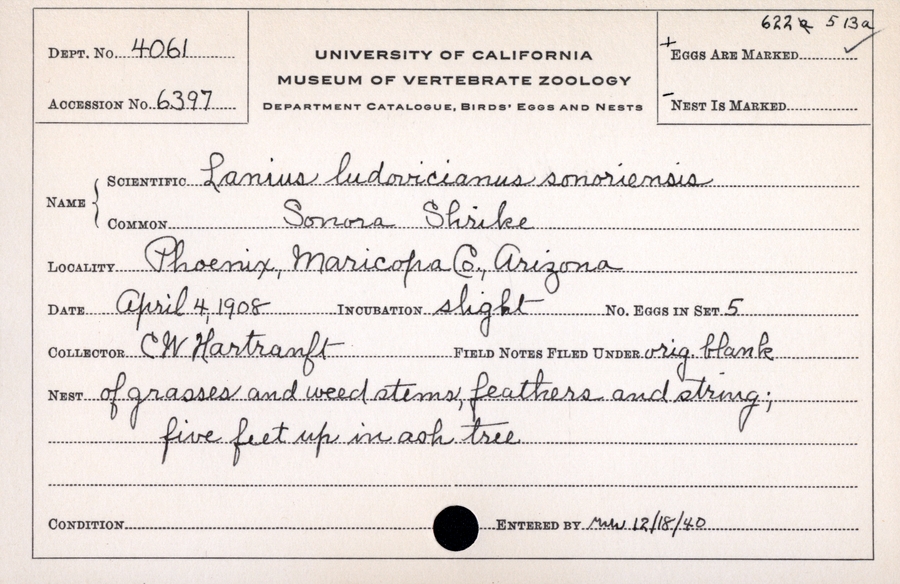 622a 5 13a
DEPT. NO. 4061
UNIVERSITY OF CALIFORNIA
+ EGGS ARE MARKED ✓
MUSEUM OF VERTEBRATE ZOOLOGY
ACCESSION NO. 6397
DEPARTMENT CATALOGUE, BIRDS' EGGS AND NESTS
- NEST IS MARKED
NAME { SCIENTIFIC Lanius ludovicianus sonoriensis
COMMON Sonora Shrike
LOCALITY Phoenix, Maricopa Co., Arizona
DATE April 4, 1908 INCUBATION slight NO. EGGS IN SET 5
COLLECTOR CW Hartranft FIELD NOTES FILED UNDER orig. blank
NEST of grasses and weed stems, feathers and string;
five feet up in ash tree
CONDITION ENTERED BY 12/18/40